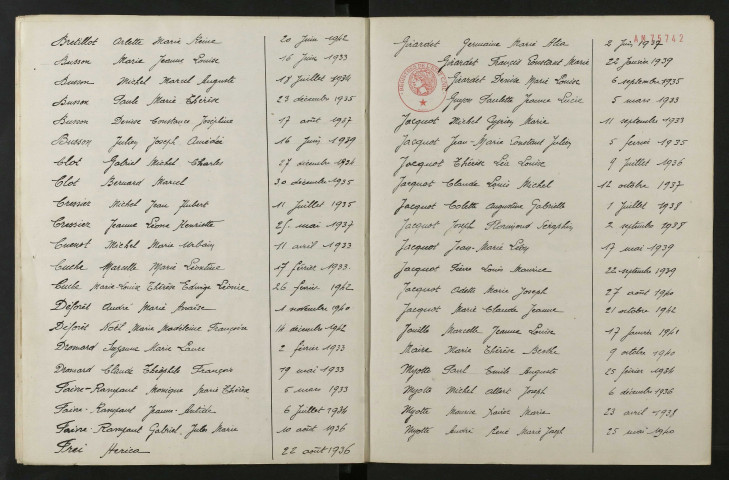 Bretillot Arlette Marie Reine 20 Juin 1942
Busson Marie Jeanne Louise 16 Juin 1933
Busson Michel Marcel Auguste 18 Juillet 1934
Busson Paule Marie Thérèse 23 décembre 1935
Busson Denise Constance Joséphine 17 août 1937
Busson Julien Joseph Amédée 16 Juin 1939
Clot Gabriel Michel Charles 27 décembre 1934
Clot Bernard Marcel 30 décembre 1935
Cressier Michel Jean Hubert 11 Juillet 1935
Cressier Jeanne Léone Henriette 25 mai 1937
Cuenot Michel Marie Urbain 11 avril 1933
Cuche Marcelle Marie Léontine 17 février 1933
Cuche Marie-Louise Thérèse Edwige Léonie 26 février 1942
Déforêt André Marie 1 novembre 1940
Déforêt Noël Marie Madeleine Françoise 14 décembre 1942
Dromard Suzanne Marie Laure 2 février 1933
Dromard Claude Théophile François 19 mai 1933
Faivre-Rampant Monique Marie Thérèse 5 mars 1933
Faivre-Rampant Jeanne- 6 Juillet 1934
Faivre-Rampant Gabriel Jules Marie 10 août 1936
Frei Herica 22 août 1936
Girardet Germaine Marie 2 Juin 1937
Girardet François Constant Marie 22 Janvier 1939
Girardet Denise Marie Louise 6 septembre 1935
Guyon Paulette Jeanne Lucie 5 mars 1933
Jacquot Michel Cyprien Marie 11 septembre 1933
Jacquot Jean-Marie Constant Julien 5 février 1935
Jacquot Thérèse Léa Louise 9 Juillet 1936
Jacquot Claude Louis Michel 12 octobre 1937
Jacquot Colette Augustine Gabrielle 1 Juillet 1938
Jacquot Joseph Raymond Séraphin 2 septembre 1938
Jacquot Jean-Marie 17 mai 1939
Jacquot Pierre Louis Maurice 22 septembre 1939
Jacquot Odette Marie Joseph 27 août 1940
Jacquot Marie Claude Jeanne 21 octobre 1942
Jouille Marcelle Jeanne Louise 17 Janvier 1941
Maire Marie Thérèse Berthe 9 octobre 1940
Myotte Paul Emile Auguste 25 février 1934
Myotte Michel Albert Joseph 6 décembre 1936
Myotte Maurice Xavier Marie 23 avril 1938
Myotte André René Marie Joseph 25 mai 1940